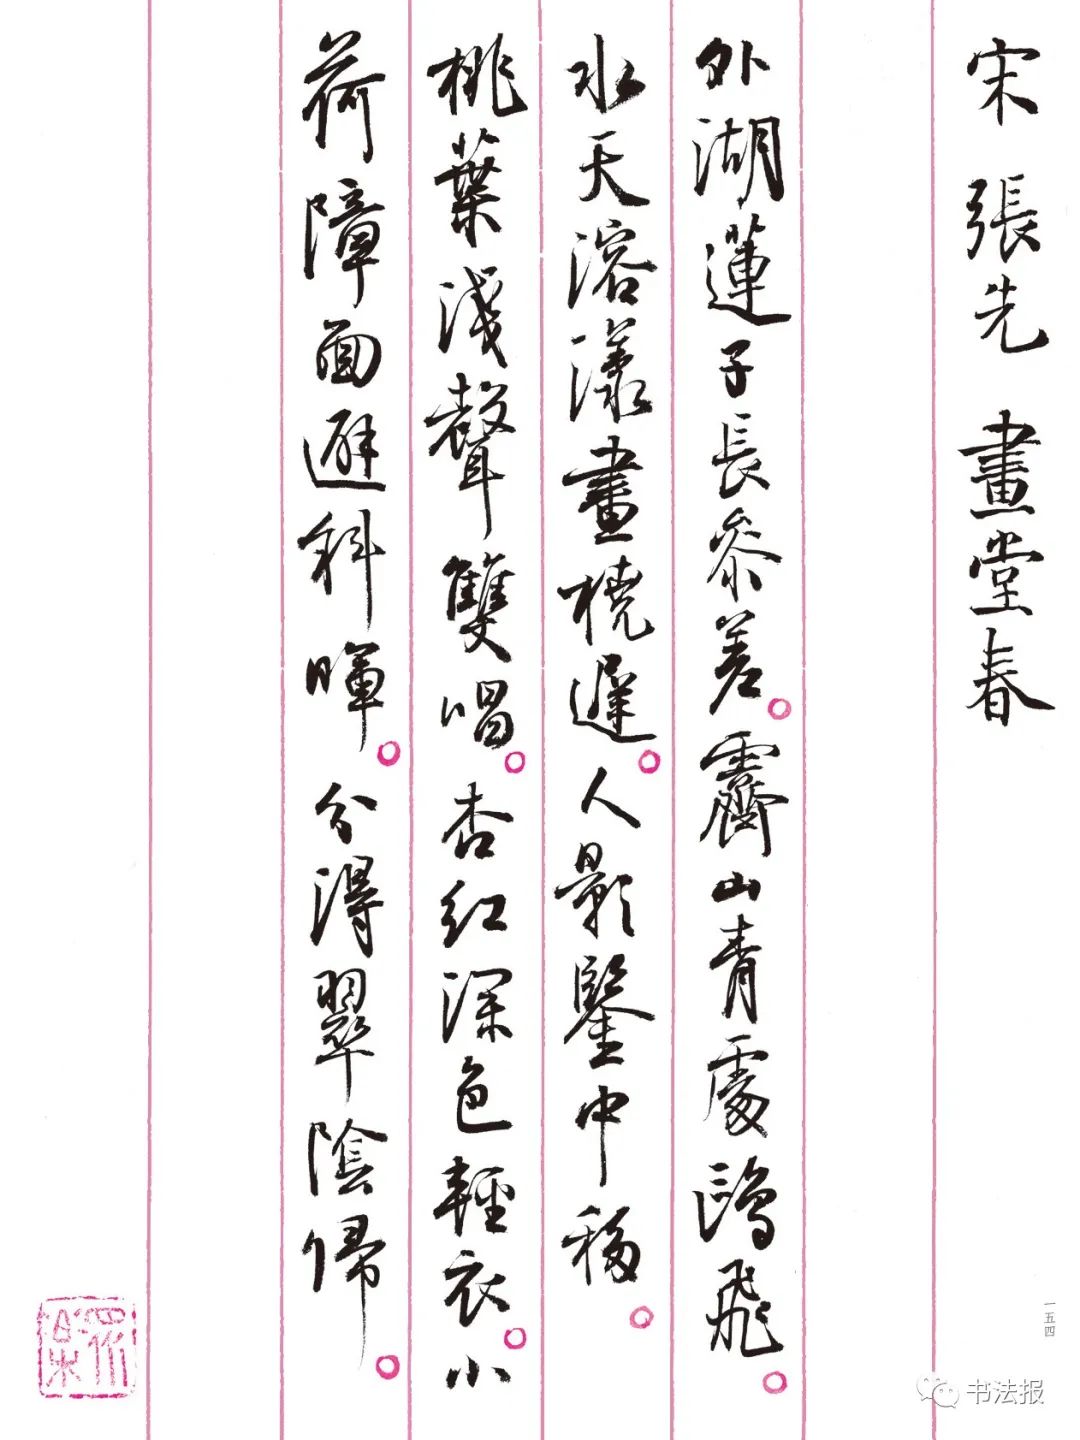 宋 張先 畫堂春
外湖蓮子長參差。霽山青處鷗飛。
水天溶漾畫橈遲。人影鑒中移。
桃葉淺聲雙唱。杏紅深色輕衣。小
荷障面避斜暉。分得翠陰歸。
一五四
书法报